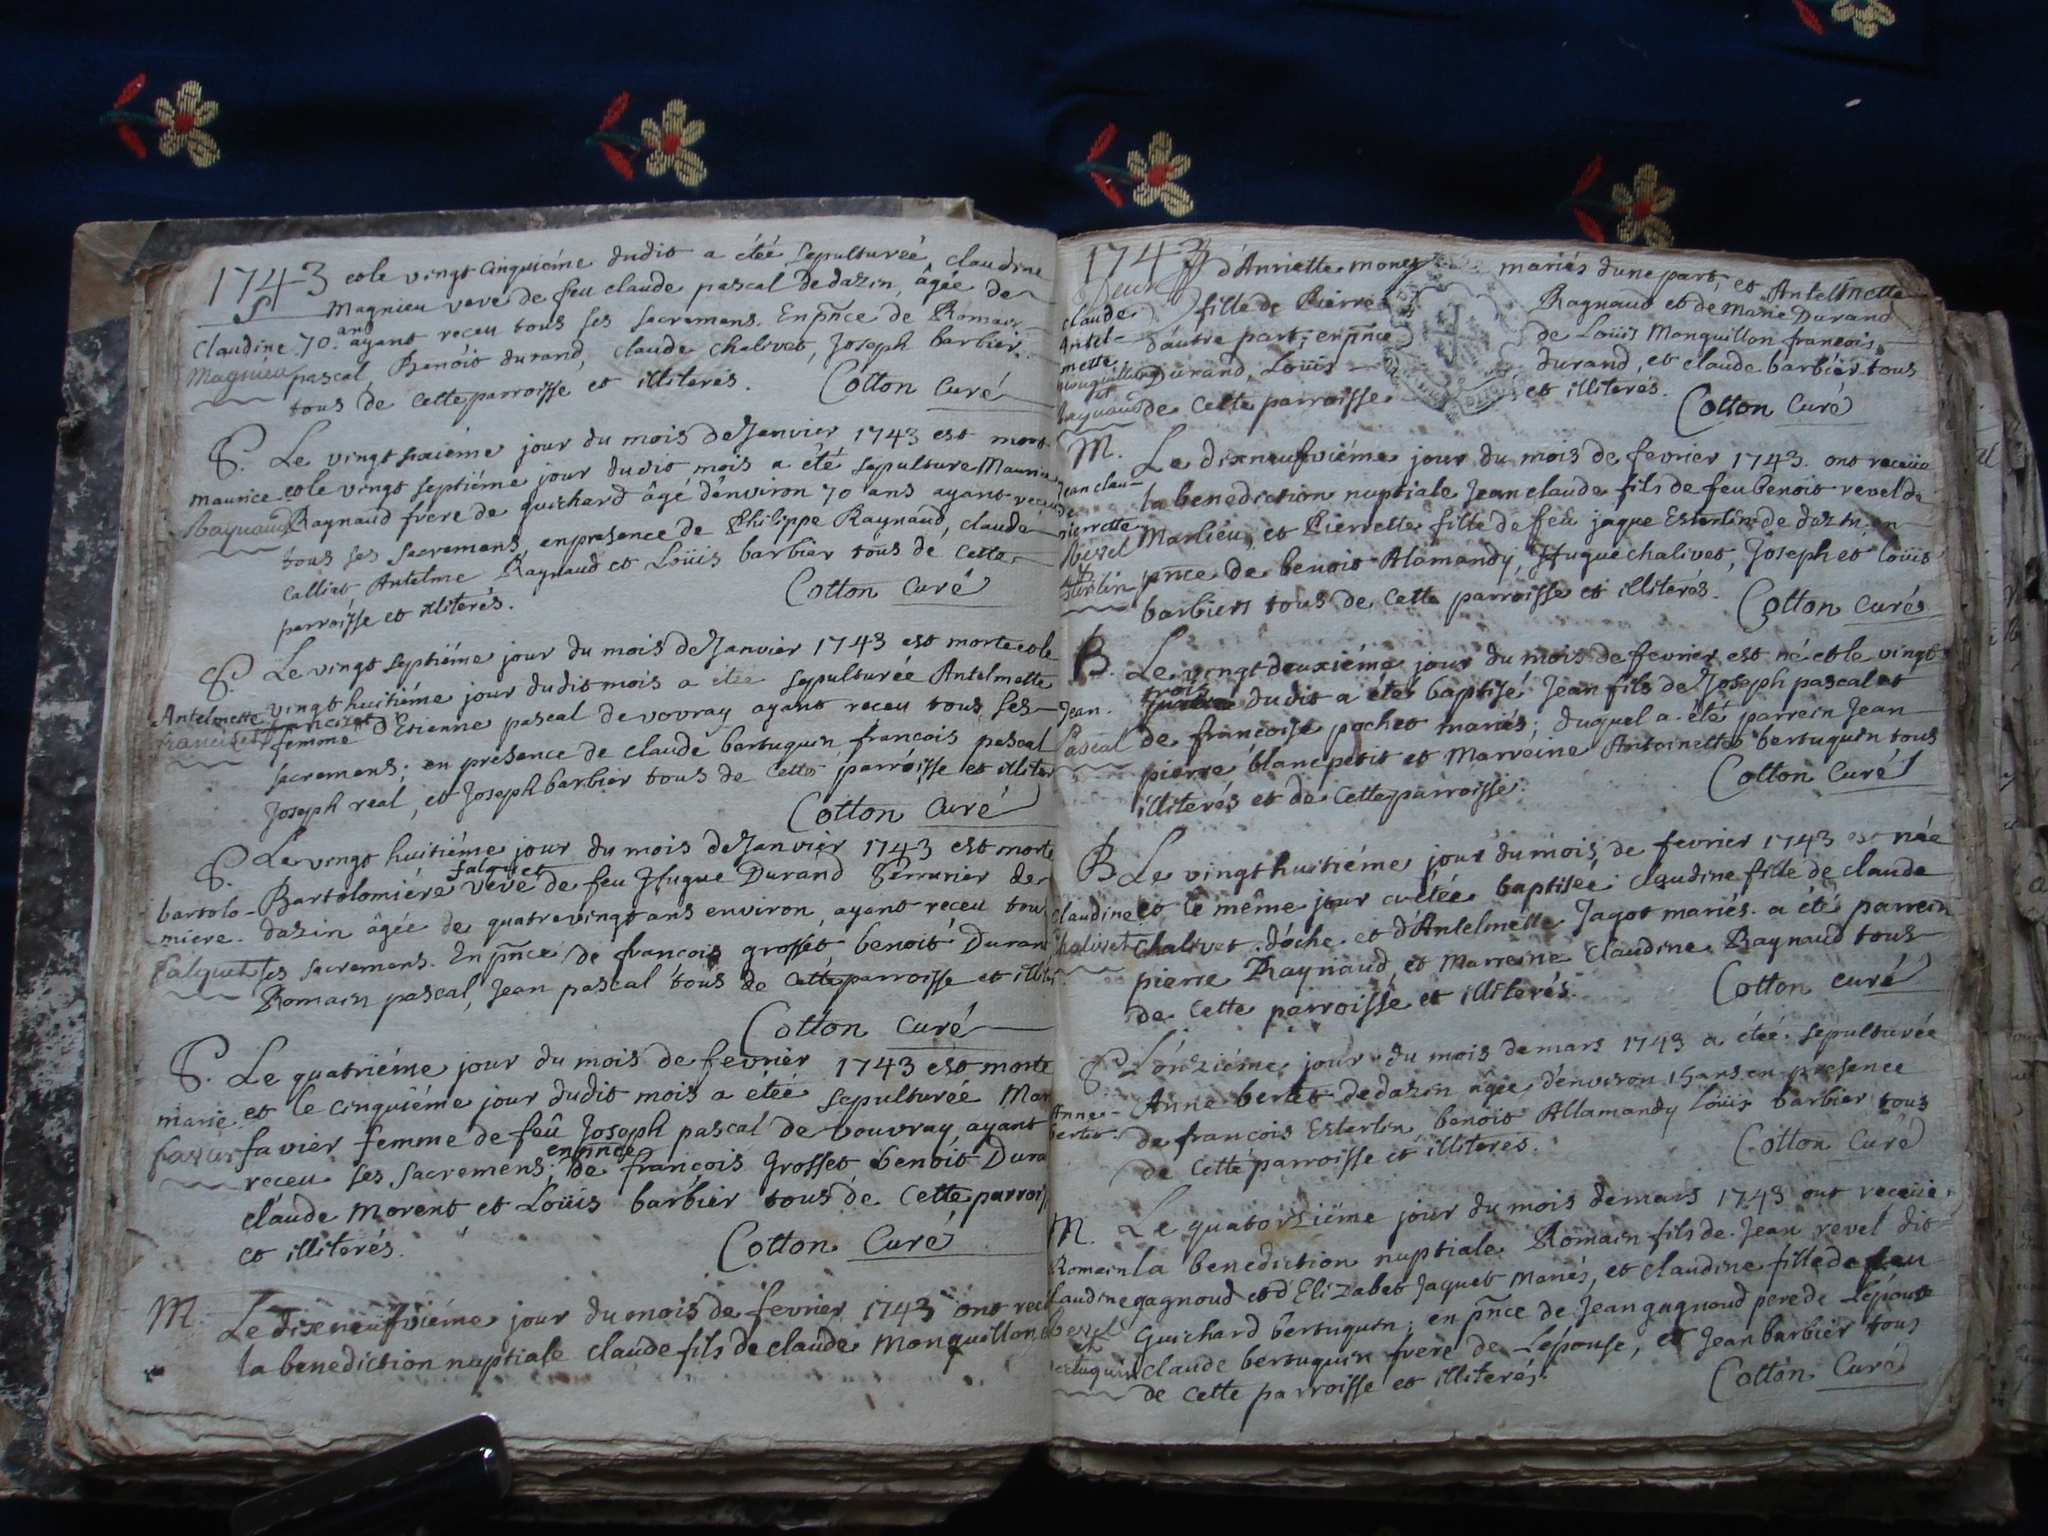 1743 et le vingt cinquiéme dudit a étéé sepulturéé claudine
S Magnieu veve de feu claude pascal de dazin, âgée de
Claudine 70 ans ayant receu tous ses sacremens. En pnce de Romain
Magnieu pascal Benoit durand, claude chalivet, Joseph barbier
tous de cette parroisse et illiterés. Cotton Curé
S. Le vingt sixiéme jour du mois de Janvier 1743 est mort
maurice et le vingt septiéme jour dudit mois a été sepulture Maurice
Raynaud Raynaud frere de guichard âgé d'environ 70 ans ayant receu
tous ses sacremens en presence de Philippe Raynaud, claude
Calliat, Antelme Raynaud et Loüis barbier tous de cette
parroisse et illiterés. Cotton Curé
S. Le vingt septiéme jour du mois de Janvier 1743 est morte et le
Antelmette vingt huitiéme jour dudit mois a étée sepulturée Antelmette
francizet femme d'Etienne pascal de vovray ayant receu tous ses
sacremens; en presence de claude bertuguin francois pascal
Joseph real, et Joseph barbier tous de cette parroisse et illiter
Cotton Curé
S. Le vingt huitiéme jour du mois de Janvier 1743 est morte
bartolo- Bartolomiére falquet veve de feu Hugue Durand serrurier de
miere. dazin âgée de quatrevingt ans environ, ayant receu tous
falquet ses sacremens. En pnce de francois grosset benoit Durand
Romain pascal, Jean pascal tous de cette parroisse et illite
Cotton curé
S. Le quatriéme jour du mois de fevrier 1743 est morte
marie et le cinquiéme jour dudit mois a étéé sepulturéé Mar
favier favier femme de feû Joseph pascal de vouvray, ayant
receu ses sacremens. en pnce de françois Grosset benoit Dura
claude morent et Loüis barbier tous de cette parrois
et illiterés. Cotton Curé
M. Le dixneufviéme jour du mois de fevrier 1743 ont rece
la benediction nuptiale claude fils de claude Monquillon
1743 d'Anriette mariés d'une part, et Antelmette
claude fille de Pierre Raynaud et de Marie Durand
Antel- d'autre part; en pnce de Loüis Monquillon francois
mette Durand, Loüis durand, et claude barbier tous
Raynaud de cette parroisse et illiterés.
Cotton Curé
M. Le dixneufviéme jour du mois de fevrier 1743. ont receüe
Jean clau- la benediction nuptiale Jean claude fils de feu benoit revel de
pierrette Marlieu, et Pierrette fille de feu jaque Esterlin de dazin en
Revel pnce de benoit Alamandy, Hugue chalivet, Joseph et loüis
Esterlin barbiers tous de cette parroisse et illiterés. Cotton curé
B. Le vingt deuxiéme jour du mois de fevrier est né et le vingt
Jean. trois dudit a étéé baptisé Jean fils de Joseph pascal et
Pascal de françoise pochet mariés; duquel a été parrein Jean
pierre blanc petit et Marreine Antoinette bertuguin tous
illiterés et de cette parroisse. Cotton Curé
B Le vingt huitiéme jour du mois de fevrier 1743 est née
Claudine et le même jour a étée baptisée claudine fille de claude
Chalivet chalivet d'oche et d'Antelmette Jagot mariés. a été parrein
pierre Raynaud, et Marreine Claudine Raynaud tous
de cette parroisse et illiterés. Cotton curé
S. L'onziéme jour du mois de mars 1743 a étéé sepulturée
Anne Anne bertet de dazin âgée d'environ 15 ans en presence
bertet de francois Esterlin, benoit Allamandy Loüis barbier tous
de cette parroisse et illiterés. Cotton Curé
M. Le quatorziéme jour du mois de mars 1743 ont receüe
Romain la benediction nuptiale Romain fils de Jean revel dit
Claudine gagnoud et d'Elizabet Jaquet Mariés, et claudine fille de feu
Revel Guichard bertuguin; en pnce de Jean gagnoud pere de L'époux
bertuguin claude bertuguin frere de L'épouse, et Jean barbier tous
de cette parroisse et illiterés. Cotton Curé